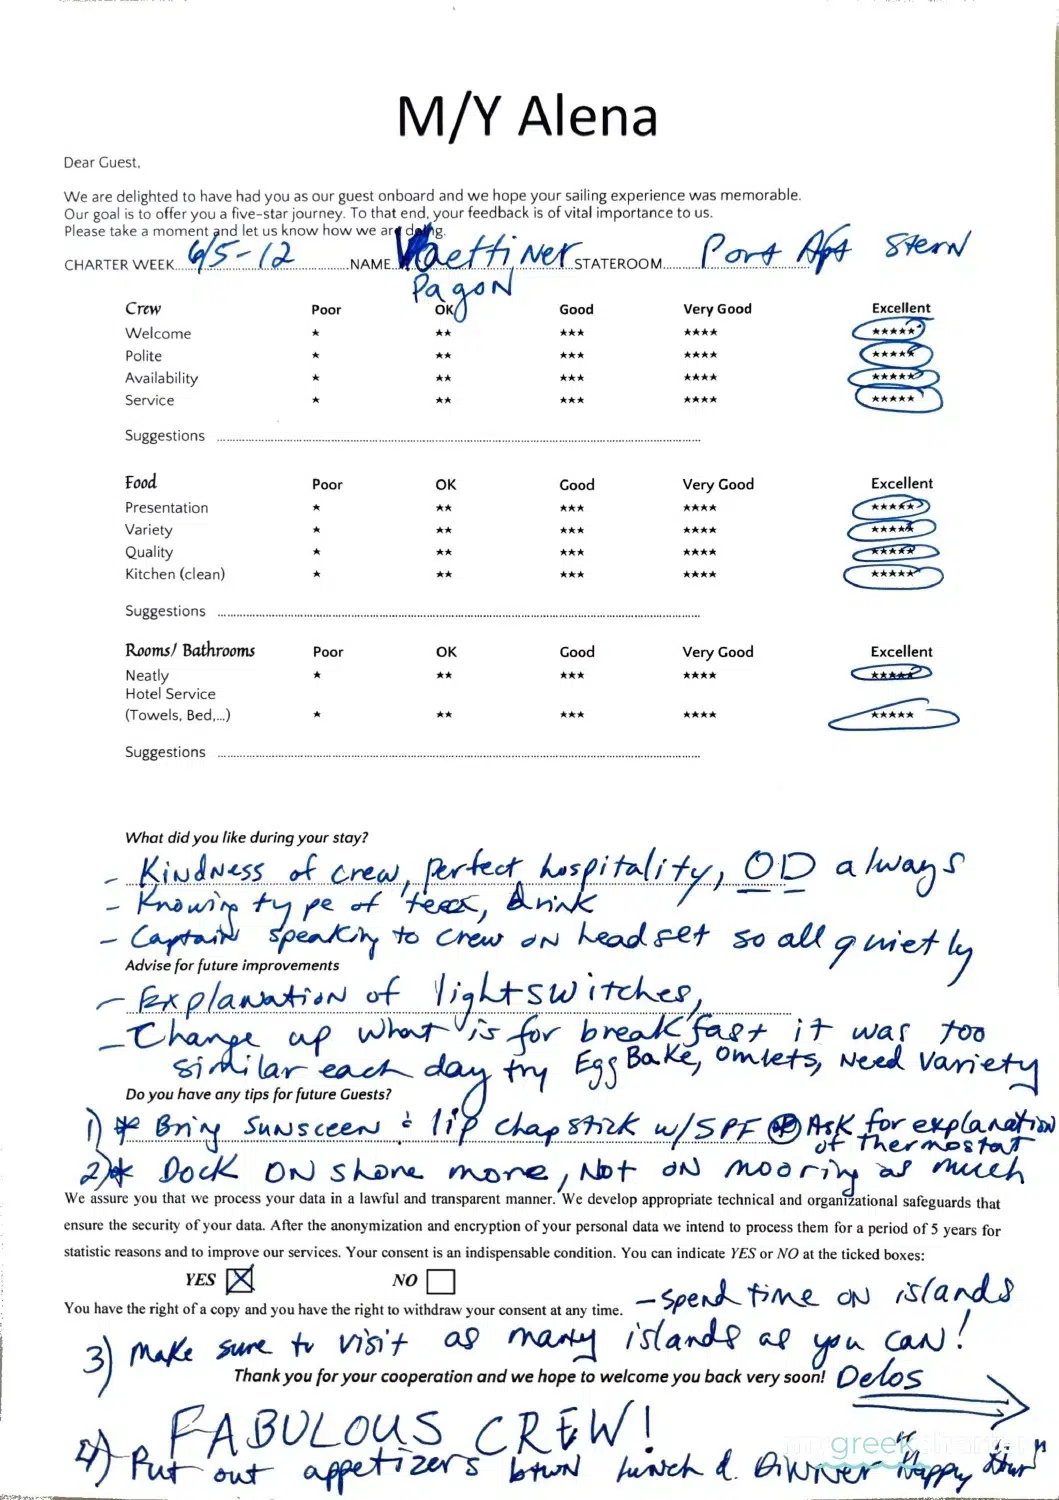 M/Y Alena
Dear Guest,
We are delighted to have had you as our guest onboard and we hope your sailing experience was memorable.
Our goal is to offer you a five-star journey. To that end, your feedback is of vital importance to us.
Please take a moment and let us know how we are doing.
CHARTER WEEK 6/5-12 NAME STATEROOM Port Aft Stern
Pagon
Crew Poor OK Good Very Good Excellent
Welcome ★ ★★ ★★★ ★★★★ ★★★★★
Polite ★ ★★ ★★★ ★★★★ ★★★★★
Availability ★ ★★ ★★★ ★★★★ ★★★★★
Service ★ ★★ ★★★ ★★★★ ★★★★★
Suggestions
Food Poor OK Good Very Good Excellent
Presentation ★ ★★ ★★★ ★★★★ ★★★★★
Variety ★ ★★ ★★★ ★★★★ ★★★★★
Quality ★ ★★ ★★★ ★★★★ ★★★★★
Kitchen (clean) ★ ★★ ★★★ ★★★★ ★★★★★
Suggestions
Rooms/ Bathrooms Poor OK Good Very Good Excellent
Neatly ★ ★★ ★★★ ★★★★ ★★★★★
Hotel Service
(Towels, Bed,...) ★ ★★ ★★★ ★★★★ ★★★★★
Suggestions
What did you like during your stay?
- Kindness of crew, perfect hospitality, OD always
- Knowing type of drink
- Captain speaking to crew on headset so all quietly
Advise for future improvements
- Explanation of lightswitches,
- Change up what is for breakfast it was too
similar each day try Egg Bake, Omlets, Need Variety
Do you have any tips for future Guests?
1) * Bring Sunsceen & lip chapstick w/SPF * Ask for explanation
of thermostat
2) * Dock on shore more, Not on mooring as much
We assure you that we process your data in a lawful and transparent manner. We develop appropriate technical and organizational safeguards that
ensure the security of your data. After the anonymization and encryption of your personal data we intend to process them for a period of 5 years for
statistic reasons and to improve our services. Your consent is an indispensable condition. You can indicate YES or NO at the ticked boxes:
YES ☒ NO ☐
You have the right of a copy and you have the right to withdraw your consent at any time. - Spend time on islands
3) Make sure to visit as many islands as you can!
Thank you for your cooperation and we hope to welcome you back very soon! Delos
FABULOUS CREW!
mygreekcharter
4) Put out appetizers btwn lunch & Dinner "Happy Hour"